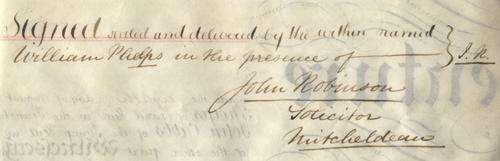 Signed sealed and delivered by the within named
William Phelps in the presence of J. R.
John Robinson
Solicitor
Mitcheldean